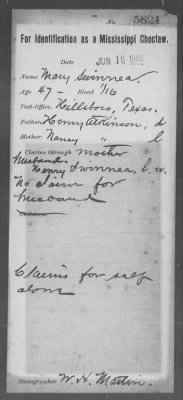 No. 5824
For Identification as a Mississippi Choctaw.
DATE JUN 16 1902
Name Mary Swinnea
Age 47 - Blood 1/16
Post-Office, Hillsboro, Texas.
Father: Henry Atkinson, d
Mother: Nancy " l
Claims through mother
Husband.
Henry Swinnea, l. w.
No claim for
husband
Children:
Claims for self
alone
Stenographer W. H. Martin.